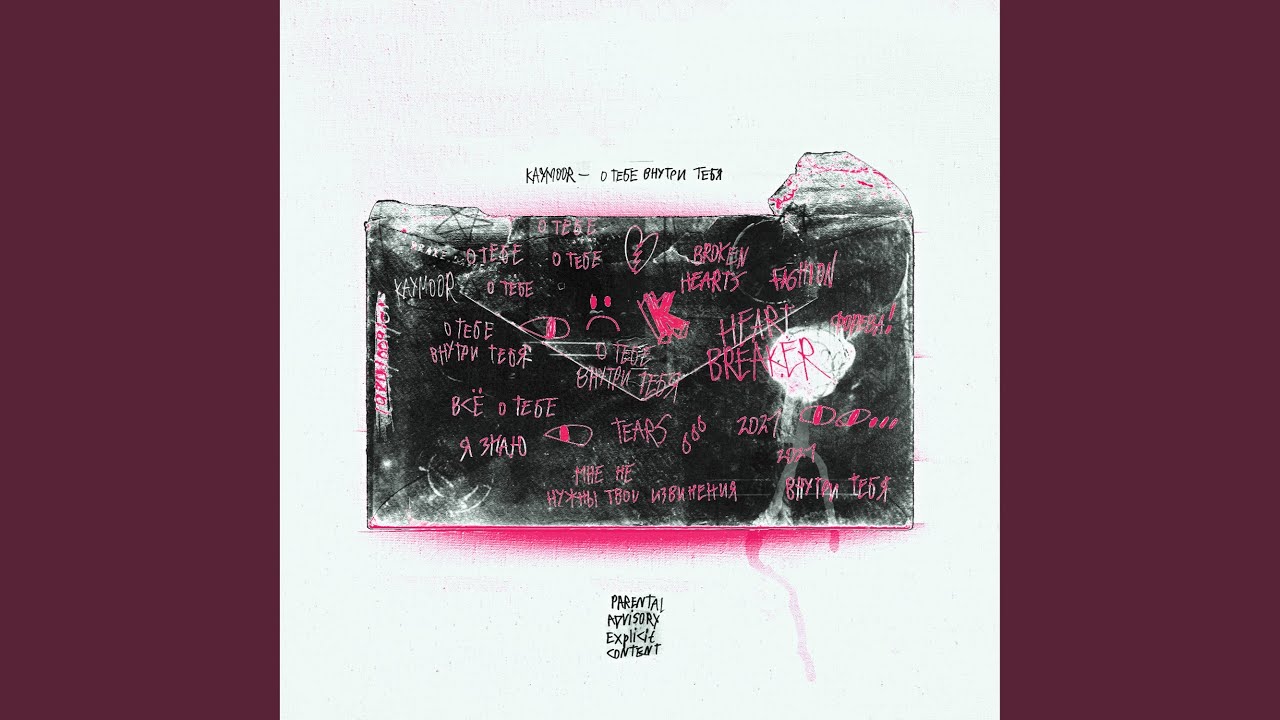 KAYMOOR — О ТЕБЕ ВНУТРИ ТЕБЯ
О ТЕБЕ
О ТЕБЕ
О ТЕБЕ
BROKEN
HEARTS
FASHION
KAYMOOR
О ТЕБЕ
О ТЕБЕ
ВНУТРИ ТЕБЯ
О ТЕБЕ
ВНУТРИ ТЕБЯ
HEART
BREAKER
ВСЁ О ТЕБЕ
Я ЗНАЮ
TEARS
2021
2021
МНЕ НЕ
НУЖНЫ ТВОИ ИЗВИНЕНИЯ
ВНУТРИ ТЕБЯ
PARENTAL
ADVISORY
Explicit
CONTENT